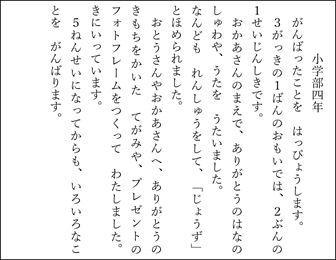 小学部四年
がんばったことを　はっぴょうします。
３がっきの１ばんのおもいでは、２ぶんの
１せいじんしきです。
おかあさんのまえで、ありがとうのはなの
しゅわや、うたを　うたいました。
なんども　れんしゅうをして、「じょうず」
とほめられました。
おとうさんやおかあさんへ、ありがとうの
きもちをかいた　てがみや、プレゼントの
フォトフレームをつくって　わたしました。
きにいっています。
５ねんせいになってからも、いろいろなこ
とを　がんばります。